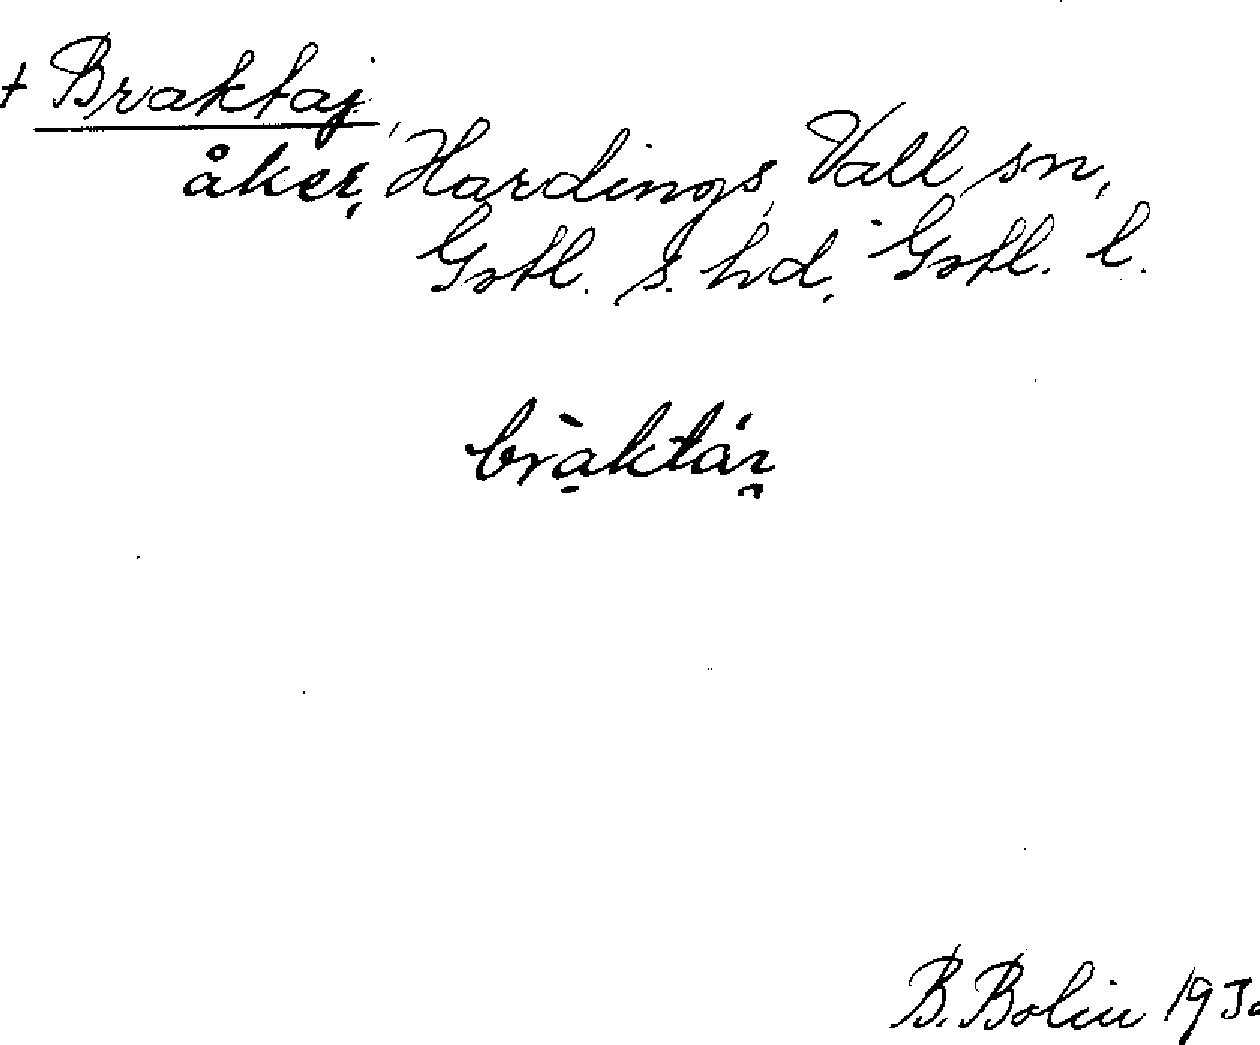 + Braktaj,
åker, Hardings, Vall sn,
Gotl. s. hd, Gotl. l.
B. Bolin